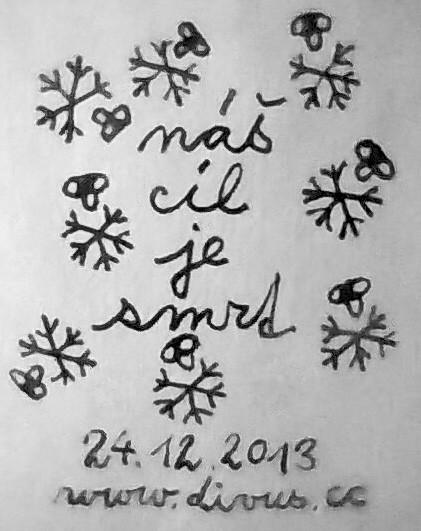 náš
cíl
je
smrt
24.12.2013
www.divus.cc